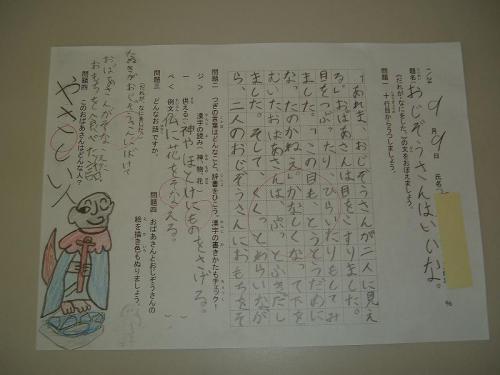 9月9日
氏名
題名 おじぞうさんはいいな。
(だれが、なにをした。)の文をおぼえましょう。
問題一 十行目からうつしましょう。
「あれま、おじぞうさんが二人に見え
る。」おばあさんは目をこすりました。
目をつぶったり、ひらいたりもしてみ
ました。「この目も、とうとうだめに
なったのかねえ。」かなしくなって下を
むいたおばあさんは、ぷっとふきだし
ました。そして、くくっとわらいなが
ら、二人のおじぞうさんにおもちをそ
問題二 つぎの言葉はどんなこと、辞書をひこう。漢字の書きかたもチェック!
ジン 漢字の読み 神 物 花
一 供える 神やほとけにものをささげる。
べく 例文 仏に花をそなえる。
問題三 どんなお話ですか。
(だれが、なにをした)
たぬきがおじぞうさんにばけて
おばあさんがそなえた
おもちを食べたお話
問題四 このおばあさんはどんな人?
やさしい人
問題四 おばあさんとおじぞうさんの
絵を描き色もぬりましょう。